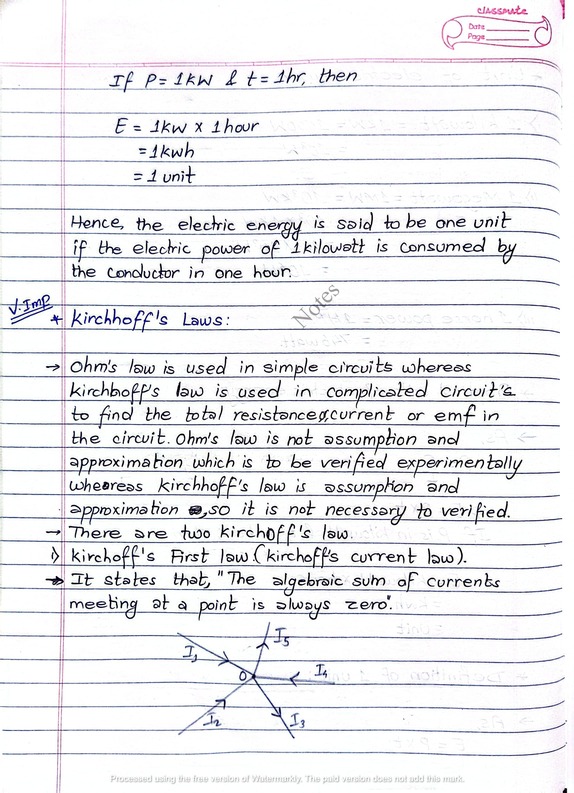 classmate
Date
Page
If P = 1KW & t = 1hr, then
E = 1kW x 1hour
= 1kwh
= 1 unit
Hence, the electric energy is said to be one unit
if the electric power of 1kilowatt is consumed by
the conductor in one hour.
Notes
V.Imp
* Kirchhoff's Laws:
→ Ohm's law is used in simple circuits whereas
kirchhoff's law is used in complicated circuit's
to find the total resistance, current or emf in
the circuit. Ohm's law is not assumption and
approximation which is to be verified experimentally
whereas kirchhoff's law is assumption and
approximation , so it is not necessary to verified.
→ There are two kirchoff's law.
i) kirchoff's First law (kirchoff's current law).
→ It states that, "The algebraic sum of currents
meeting at a point is always zero".
I5
I1
O
I4
I2
I3
Processed using the free version of Watermarkly. The paid version does not add this mark.